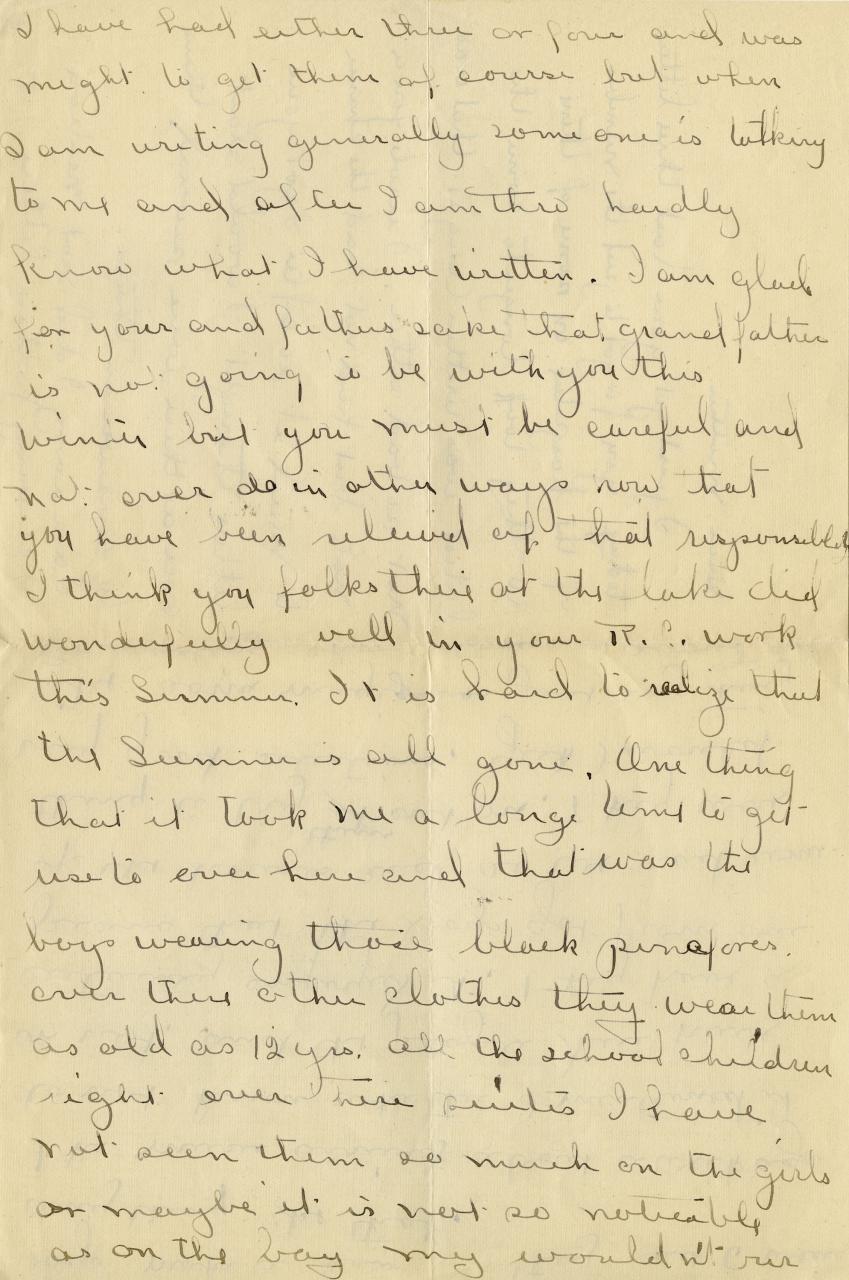 I have had either three or four and was
might to get them of course but when
I am writing generally some one is talking
to me and after I am thro hardly
know what I have written. I am glad
for your and fathers sake that grandfather
is not going to be with you this
winter but you must be careful and
not over do in other ways now that
you have been releived of that
I think you folks there at the lake did
wonderfully well in your R. C. work
this Summer. It is hard to realize that
the Summer is all gone. One thing
that it took me a longe time to get
use to over here and that was the
boys wearing those black pinafores.
over there other clothes they wear them
as old as 12 yrs. all the school children
right over here I have
not seen them so much on the girls
or maybe it is not so noticable
as on the boy my wouldn't our